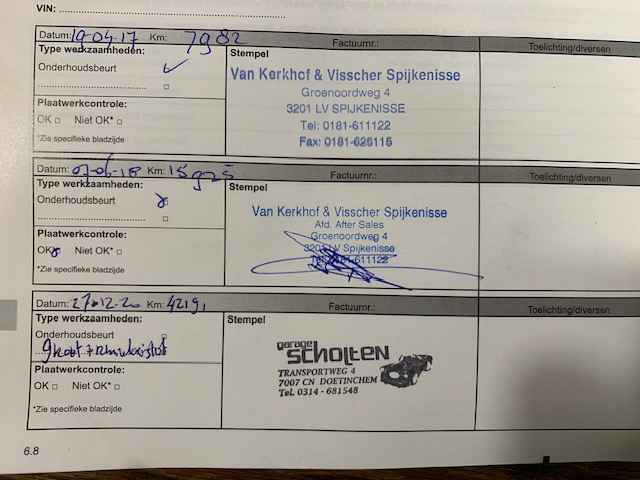 VIN:
Datum: 19-04-17 Km: 7982 Factuurnr.: Toelichting/diversen
Type werkzaamheden:
Onderhoudsbeurt
Plaatwerkcontrole:
OK Niet OK*
*Zie specifieke bladzijde
Stempel
Van Kerkhof & Visscher Spijkenisse
Groenoordweg 4
3201 LV SPIJKENISSE
Tel: 0181-611122
Fax: 0181-626115
Datum: 07-06-18 Km: 15925 Factuurnr.: Toelichting/diversen
Type werkzaamheden:
Onderhoudsbeurt
Plaatwerkcontrole:
OK Niet OK*
*Zie specifieke bladzijde
Stempel
Van Kerkhof & Visscher Spijkenisse
Afd. After Sales
Groenoordweg 4
3201 LV Spijkenisse
Tel: 0181-611122
Datum: 27-12-20 Km: 42191 Factuurnr.: Toelichting/diversen
Type werkzaamheden:
Onderhoudsbeurt
Plaatwerkcontrole:
OK Niet OK*
*Zie specifieke bladzijde
Stempel
garage
SCHOLTEN
TRANSPORTWEG 4
7007 CN DOETINCHEM
Tel. 0314 - 681548
6.8